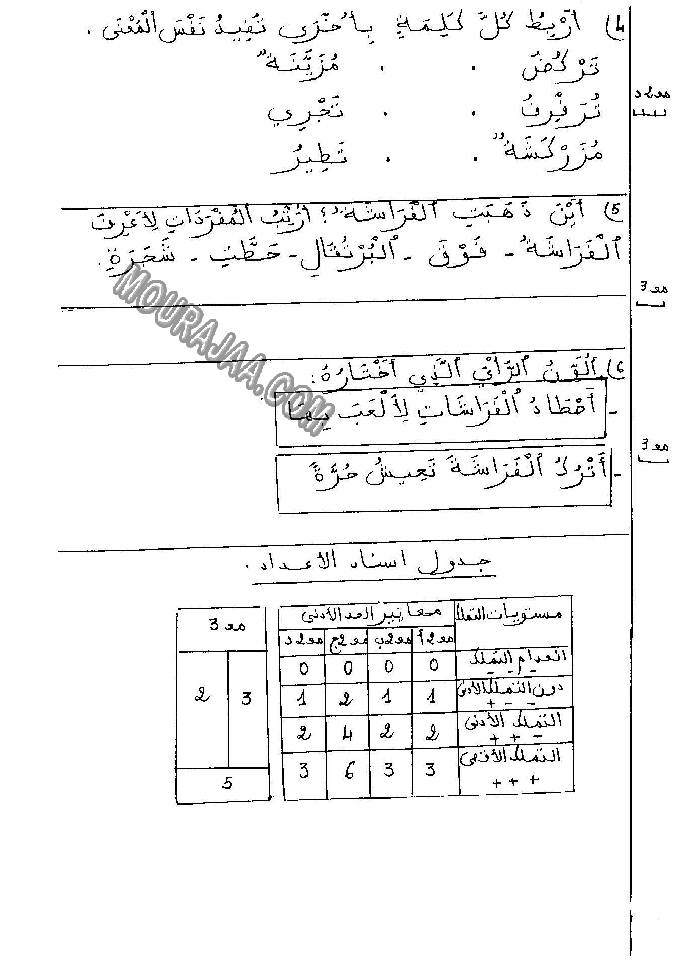 4) أَرْبِطُ كُلَّ كَلِمَةٍ بِأُخْرَى تُفِيدُ نَفْسَ الْمَعْنَى .
تَرْكُضُ . . مُزَيَّنَةٌ
مع2د
تُرَفْرِفُ . . تَجْرِي
مُزَرْكَشَةٌ . . تَطِيرُ
5) أَيْنَ ذَهَبَتِ الْفَرَاشَةُ ؟ أُرَتِّبُ الْمُفْرَدَاتِ لِأَعْرِفَ
الْفَرَاشَةُ - فَوْقَ - الْبُرْتُقَالِ - حَطَّتْ - شَجَرَةِ.
مع3
MOURAJAA.COM
6) أُلَوِّنُ الرَّأْيَ الَّذِي أَخْتَارُهُ :
- أَصْطَادُ الْفَرَاشَاتِ لِأَلْعَبَ بِهَا
مع3
- أَتْرُكُ الْفَرَاشَةَ تَعِيشُ حُرَّةً
جدول اسناد الأعداد .
مستويات التملك معايير الحد الأدنى مع3
مع2أ مع2ب مع2ج مع2د
انعدام التملك 0 0 0 0
دون التملك الأدنى + - - 1 1 2 1 3 2
التملك الأدنى + + - 2 2 4 2
التملك الأقصى + + + 3 3 6 3
5